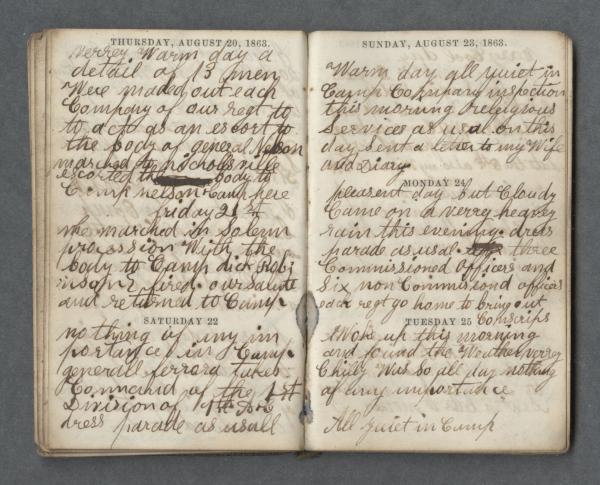 THURSDAY, AUGUST 20, 1863.
verrey Warm day a
detail of 13 men
Were maded out each
Company of our regt to
to act as an escort to
the body of general Nelson
marched to nicholsville
escorted the body to
Camp nelson Camp here
friday 21st
we marched in Solemn
procession With the
body to Camp dick Robi
nson Expired our Salute
and returned to Camp
SATURDAY 22
nothing of iny im
portance in Camp
generall ferrord takes
Command of the 1st
Division of
dress parade as usall
SUNDAY, AUGUST 23, 1863.
Warm day all quiet in
Camp Company inspection
this morning Religious
Services as usal on this
day sent a letter to my Wife
and Diary
MONDAY 24
pleasent day but Cloudy
Came on a verrey heavey
rain this evening dress
parade as usal three
Commissioned Officers and
Six non Commissiond officers
each regt go home to bring out
Conscrips
TUESDAY 25
AWoke up this morning
and found the Weather verrey
Chilly Was so all day nothing
of any importance
All quiet in Camp